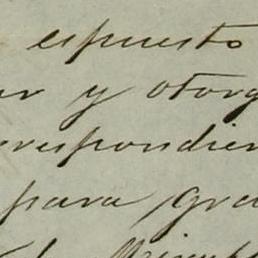 espuesto
ar y otorg
rrespondien
para gra